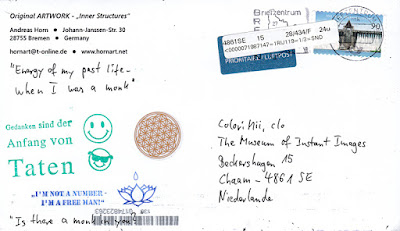 Original ARTWORK - „Inner Structures"
Andreas Horn • Johann-Janssen-Str. 30
28755 Bremen • Germany
hornart@t-online.de • www.hornart.net
"Energy of my past life -
when I was a monk"
Gedanken sind der
Anfang von
Taten
"I'M NOT A NUMBER -
I'M A FREE MAN!"
"Is there a monk in you?"
Briefzentrum
4861SE 15 28/434/F 24u
PRIORITAIRE / LUFTPOST
90
Colori Mii, c/o
The Museum of Instant Images
Beckershagen 15
Chaam - 4861 SE
Niederlande